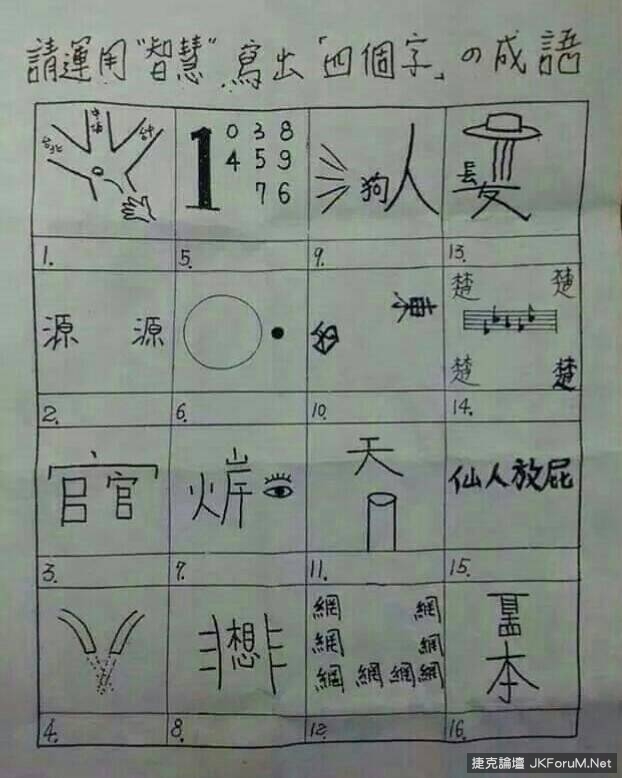 請運用"智慧"寫出「四個字」の成語
台北
1 0 3 8
4 5 9
7 6
狗人
長
1. 5. 9. 13.
源 源
東
西
楚 楚
楚 楚
2. 6. 10. 14.
官
火岸
天
仙人放屁
3. 7. 11. 15.
想
網 網
網 網
網 網 網網
本
4. 8. 12. 16.
捷克論壇 JKForuM.Net